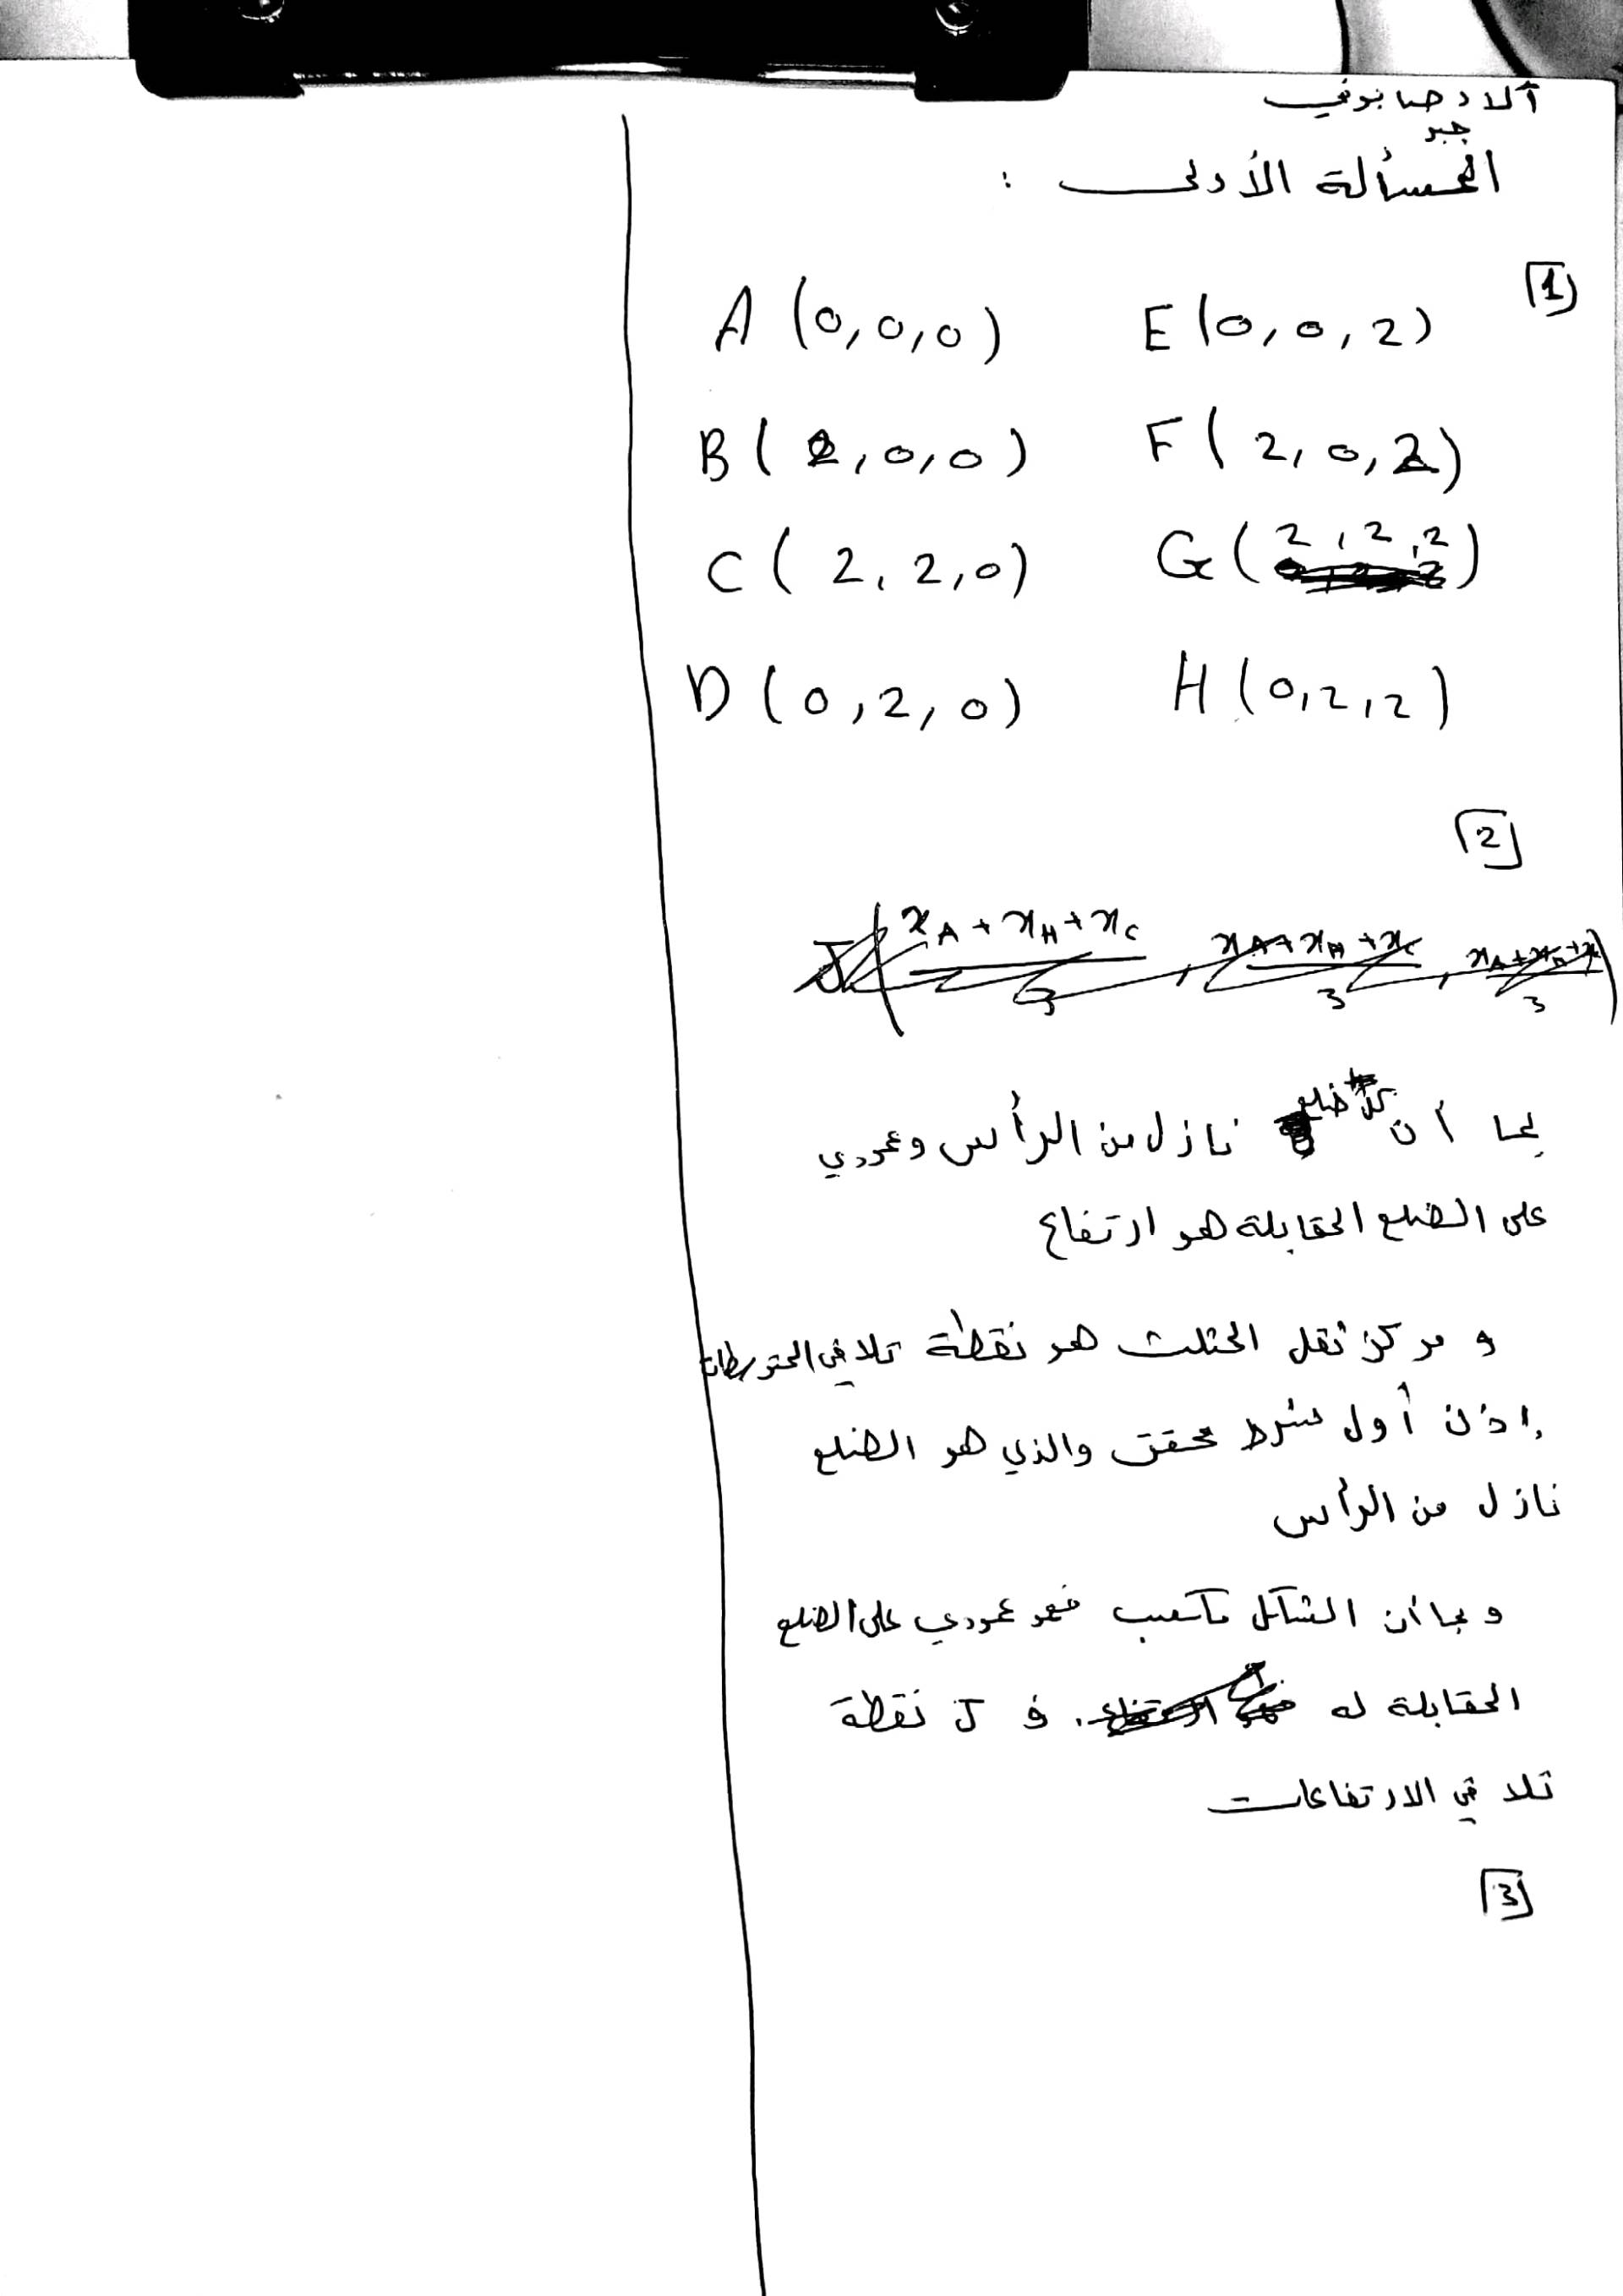 آلاء صابوني
جبر
المسألة الأولى :
1
A (0,0,0) E (0,0,2)
B (2,0,0) F (2,0,2)
C (2,2,0) G (2,2,2)
D (0,2,0) H (0,2,2)
2
J ( xA + xH + xC / 3 , xA + xH + xC / 3 , xA + xH + x / 3 )
بما أن كل ضلع نازل من الرأس وعمودي
على الضلع المقابلة هو ارتفاع
و مركز ثقل المثلث هو نقطة تلاقي المتوسطات
إذن أول شرط محقق والذي هو الضلع
نازل من الرأس
و بما أن الشكل مكعب فهو عمودي على الضلع
المقابلة له ف J نقطة
تلاقي الارتفاعات
3